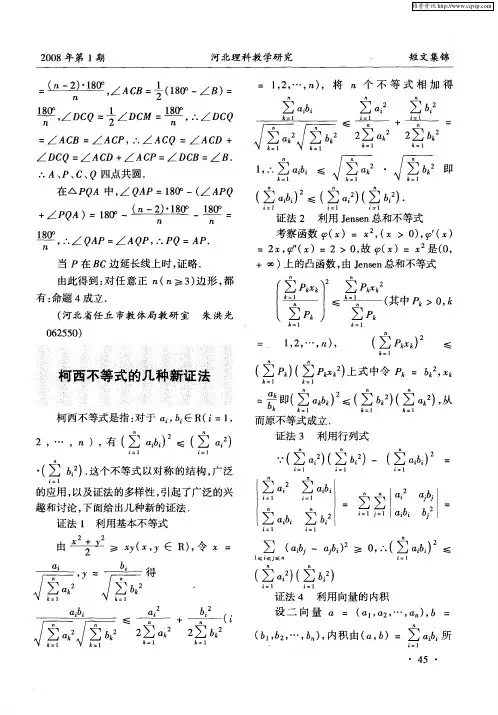 维普资讯 http://www.cqvip.com
2008年第1期 河北理科教学研究 短文集锦
= (n-2)·180°/n, ∠ACB = 1/2(180° - ∠B) =
180°/n, ∠DCQ = 1/2∠DCM = 180°/n, ∴∠DCQ
= ∠ACB = ∠ACP, ∴∠ACQ = ∠ACD +
∠DCQ = ∠ACD + ∠ACP = ∠DCB = ∠B.
∴A、P、C、Q四点共圆.
在△PQA中, ∠QAP = 180° - (∠APQ
+ ∠PQA) = 180° - (n-2)·180°/n - 180°/n =
180°/n, ∴∠QAP = ∠AQP, ∴PQ = AP.
当P在BC边延长线上时,证略.
由此得到:对任意正n(n≥3)边形,都
有:命题4成立.
(河北省任丘市教体局教研室 朱洪光
062550)
柯西不等式的几种新证法
柯西不等式是指:对于 a_i, b_i∈R(i = 1,
2, …, n), 有(∑_{i=1}^n a_i b_i)² ≤ (∑_{i=1}^n a_i²)
·(∑_{i=1}^n b_i²).这个不等式以对称的结构,广泛
的应用,以及证法的多样性,引起了广泛的兴
趣和讨论,下面给出几种新的证法.
证法1 利用基本不等式
由 (x² + y²)/2 ≥ xy(x, y ∈ R), 令 x =
a_i/√(∑_{k=1}^n a_k²), y = b_i/√(∑_{k=1}^n b_k²) 得
a_i b_i/(√(∑_{k=1}^n a_k²) √(∑_{k=1}^n b_k²)) ≤ a_i²/(2∑_{k=1}^n a_k²) + b_i²/(2∑_{k=1}^n b_k²) (i
= 1,2,…,n), 将 n 个不等式相加得
∑_{i=1}^n a_i b_i/(√(∑_{k=1}^n a_k²) √(∑_{k=1}^n b_k²)) ≤ ∑_{i=1}^n a_i²/(2∑_{k=1}^n a_k²) + ∑_{i=1}^n b_i²/(2∑_{k=1}^n b_k²) =
1, ∴∑_{i=1}^n a_i b_i ≤ √(∑_{k=1}^n a_k²) · √(∑_{k=1}^n b_k²) 即
(∑_{i=1}^n a_i b_i)² ≤ (∑_{i=1}^n a_i²)(∑_{i=1}^n b_i²).
证法2 利用Jensen总和不等式
考察函数 φ(x) = x², (x > 0), φ'(x)
= 2x, φ"(x) = 2 > 0, 故 φ(x) = x² 是(0,
+∞)上的凸函数,由Jensen总和不等式
(∑_{k=1}^n P_k x_k / ∑_{k=1}^n P_k)² ≤ ∑_{k=1}^n P_k x_k² / ∑_{k=1}^n P_k (其中 P_k > 0, k
= 1,2,…,n), (∑_{k=1}^n P_k x_k)² ≤
(∑_{k=1}^n P_k)(∑_{k=1}^n P_k x_k²)上式中令 P_k = b_k², x_k
= a_k/b_k 即(∑_{i=1}^n a_k b_k)² ≤ (∑_{i=1}^n b_k²)(∑_{i=1}^n a_k²), 从
而原不等式成立.
证法3 利用行列式
∵(∑_{i=1}^n a_i²)(∑_{i=1}^n b_i²) - (∑_{i=1}^n a_i b_i)² =
|∑_{i=1}^n a_i² ∑_{i=1}^n a_i b_i; ∑_{i=1}^n a_i b_i ∑_{i=1}^n b_i²| = ∑_{i=1}^n ∑_{j=1}^n |a_i² a_j b_j; a_i b_i b_j²| =
∑_{1≤i≤j≤n} (a_i b_j - a_j b_i)² ≥ 0, ∴(∑_{i=1}^n a_i b_i)² ≤
(∑_{i=1}^n a_i²)(∑_{i=1}^n b_i²)
证法4 利用向量的内积
设二向量 a = (a₁,a₂,…,a_n), b =
(b₁,b₂,…,b_n), 内积由(a, b) = ∑_{i=1}^n a_i b_i 所
· 45 ·